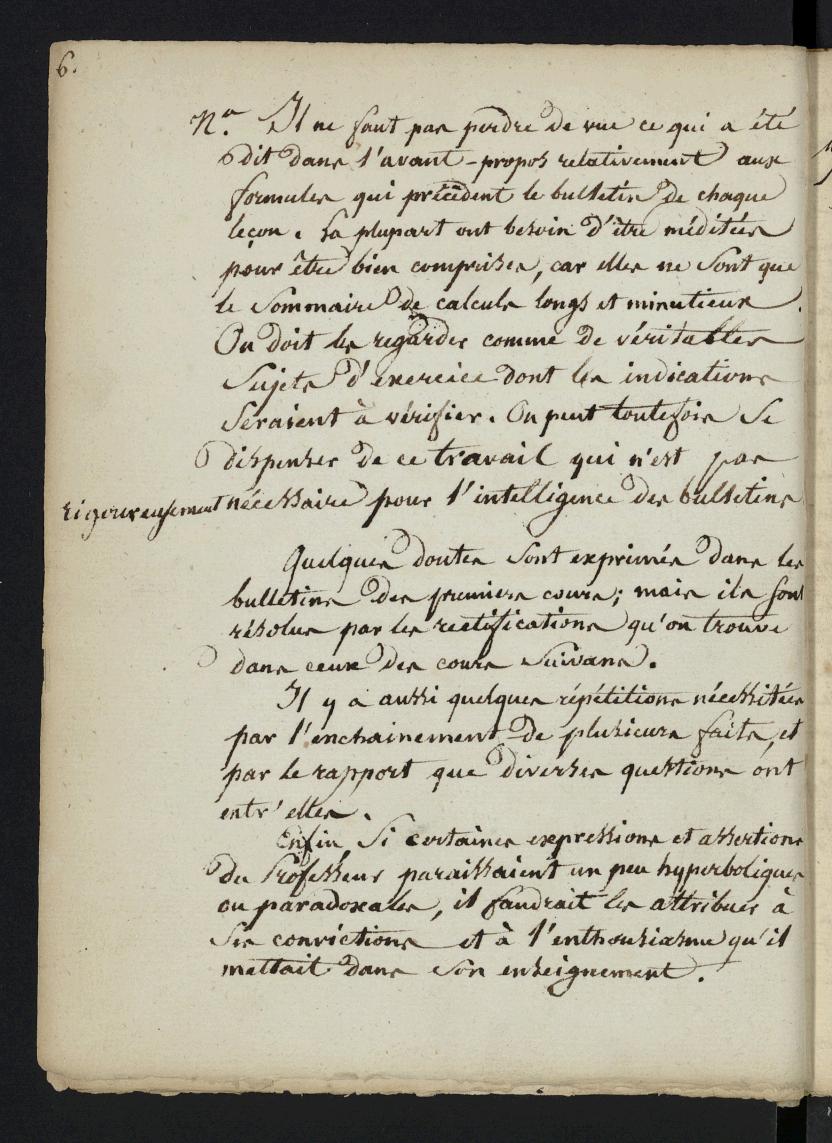 6.
Na. Il ne faut pas perdre de vue ce qui a été
dit dans l'avant-propos relativement aux
formules qui précèdent le bulletin de chaque
leçon. La plupart ont besoin d'être méditées
pour être bien comprises, car elles ne sont que
le sommaire de calculs longs et minutieux.
On doit les regarder comme de véritables
sujets d'exercice dont les indications
seraient à vérifier. On peut toutefois se
dispenser de ce travail qui n'est pas
rigoureusement nécessaire pour l'intelligence des bulletins
Quelques doutes sont exprimés dans les
bulletins des premiers cours; mais ils sont
résolus par les rectifications qu'on trouve
dans ceux des cours suivans.
Il y a aussi quelques répétitions nécessitées
par l'enchainement de plusieurs faits, et
par le rapport que diverses questions ont
entr'elles.
Enfin, si certaines expressions et assertions
du Professeur paraissaient un peu hyperboliques
ou paradoxales, il faudrait les attribuer à
ses convictions et à l'enthousiasme qu'il
mettait dans son enseignement.